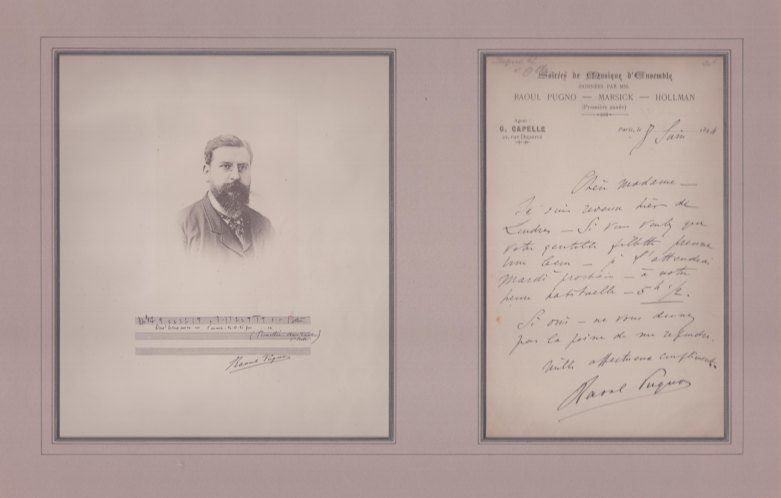 Raoul Pugno
Soirées de Musique d'Ensemble
DONNÉES PAR MM.
RAOUL PUGNO — MARSICK — HOLLMAN
(Première année)
Agent :
G. CAPELLE
Paris, le 8 Juin
Chère Madame —
Je suis revenu hier de
Londres — Si vous voulez que
votre gentille fillette prenne
une leçon — je l'attendrai
Mardi prochain — à notre
heure habituelle — 5h 1/2.
Si oui — ne vous donnez
pas la peine de me répondre.
Mille affectueux compliments
Raoul Pugno